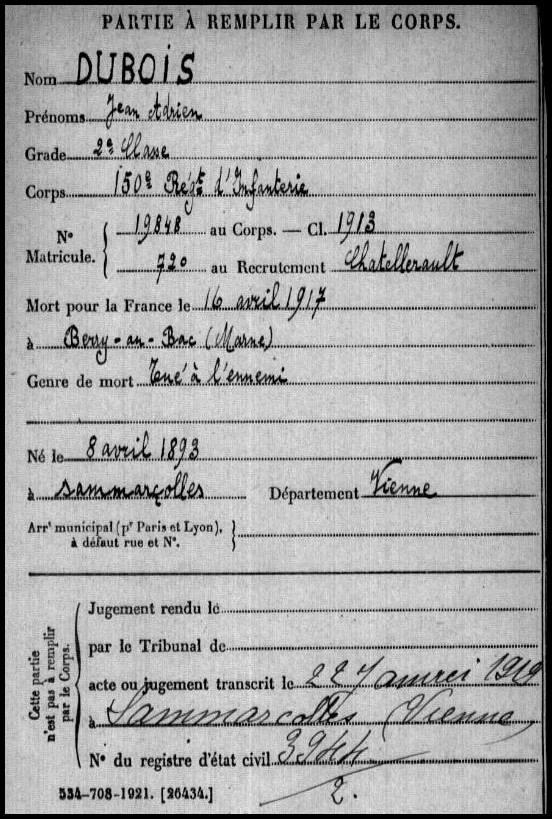 PARTIE À REMPLIR PAR LE CORPS.
Nom DUBOIS
Prénoms Jean Adrien
Grade 2e Classe
Corps 150e Régt d'Infanterie
N° Matricule. { 19848 au Corps. — Cl. 1913
720 au Recrutement Chatellerault
Mort pour la France le 16 avril 1917
à Berry-au-Bac (Marne)
Genre de mort Tué à l'ennemi
Né le 8 avril 1893
à Sammarçolles Département Vienne
Arrt municipal (pr Paris et Lyon),
à défaut rue et N°.
Cette partie n'est pas à remplir par le Corps.
Jugement rendu le
par le Tribunal de
acte ou jugement transcrit le 22 Janvier 1919
à Sammarcolles (Vienne)
N° du registre d'état civil
534-708-1921. [26434.] 2.